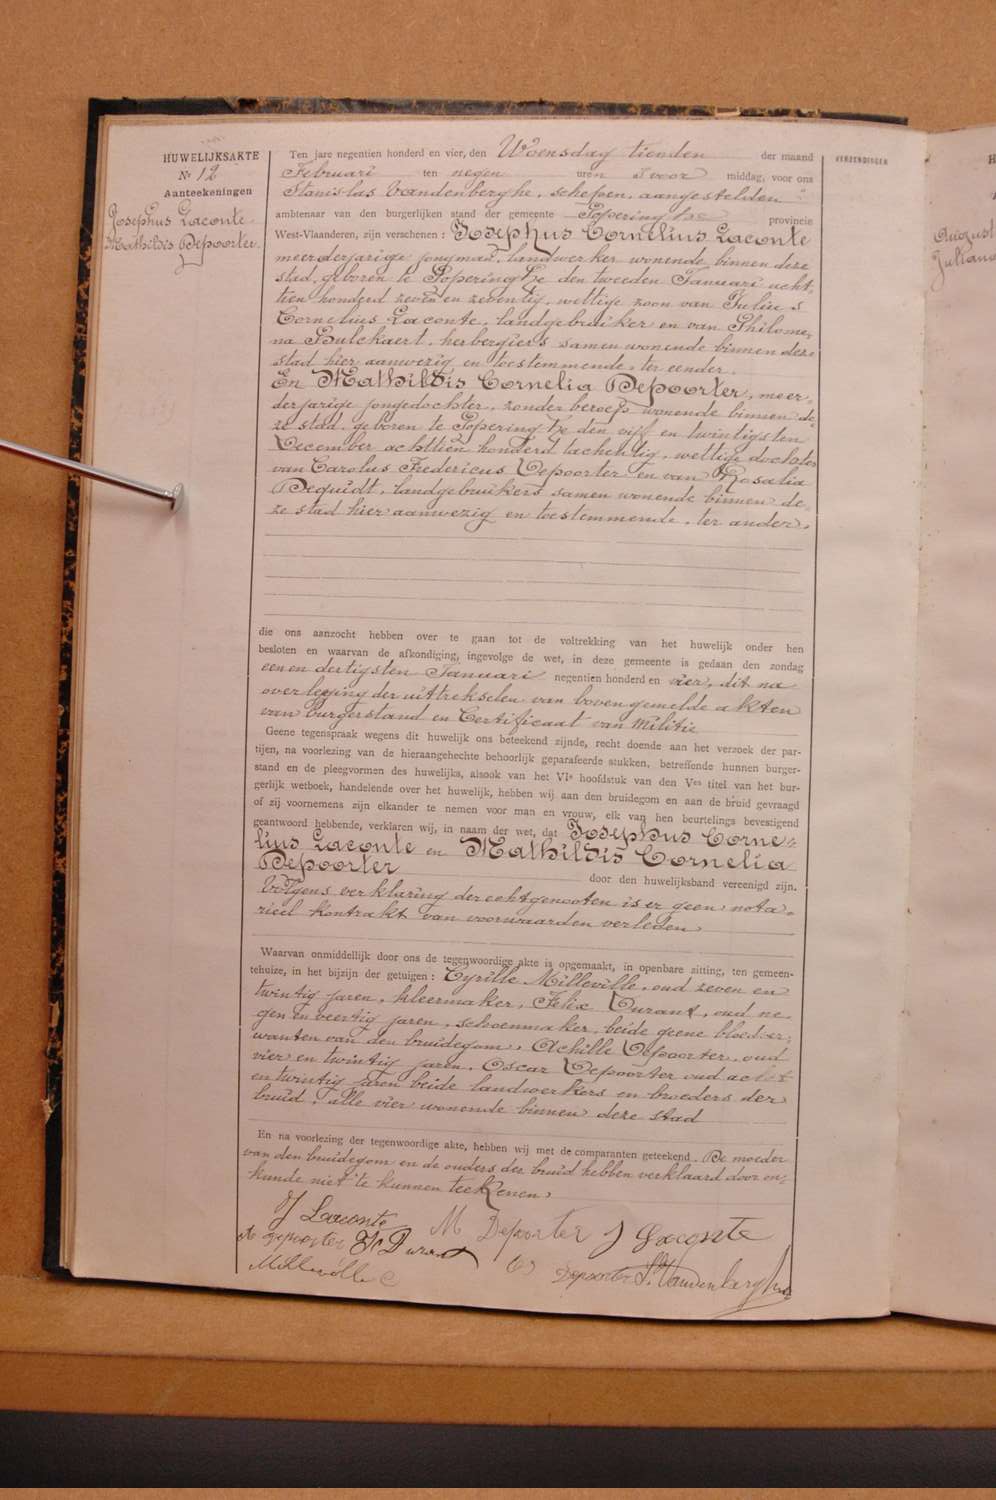 HUWELIJKSAKTE
Nr 12
Aanteekeningen
Josephus Laconte
Mathildis Depoorter.
Ten jare negentien honderd en vier, den Woensdag tienden der maand
Februari ten negen uren voor middag, voor ons
Stanislas Vandenberghe, schepen, aangestelden
ambtenaar van den burgerlijken stand der gemeente Poperinghe provincie
West-Vlaanderen, zijn verschenen : Josephus Cornelius Laconte
meerderjarige jongman, landwerker wonende binnen deze
stad, geboren te Poperinghe den tweeden Januari acht-
tien honderd zeven en zeventig, wettige zoon van Julius
Cornelius Laconte, landgebruiker en van Philome-
na Bulckaert, herbergiers samen wonende binnen deze
stad hier aanwezig en toestemmende, ter eender.
En Mathildis Cornelia Depoorter, meer-
derjarige jongedochter, zonder beroep wonende binnen de-
ze stad, geboren te Poperinghe den vijf en twintigsten
December achttien honderd tachentig, wettige dochter
van Carolus Fredericus Depoorter en van Rosalia
Dequidt, landgebruikers samen wonende binnen de-
ze stad hier aanwezig en toestemmende, ter ander.
die ons aanzocht hebben over te gaan tot de voltrekking van het huwelijk onder hen
besloten en waarvan de afkondiging, ingevolge de wet, in deze gemeente is gedaan den zondag
een en dertigsten Januari negentien honderd en vier, dit na
overlegging der uittrekselen van bovengemelde akten
van burgerstand en Certificaat van Militie
Geene tegenspraak wegens dit huwelijk ons beteekend zijnde, recht doende aan het verzoek der par-
tijen, na voorlezing van de hieraangehechte behoorlijk geparafeerde stukken, betreffende hunnen burger-
stand en de pleegvormen des huwelijks, alsook van het VIe hoofdstuk van den Ven titel van het bur-
gerlijk wetboek, handelende over het huwelijk, hebben wij aan den bruidegom en aan de bruid gevraagd
of zij voornemens zijn elkander te nemen voor man en vrouw, elk van hen beurtelings bevestigend
geantwoord hebbende, verklaren wij, in naam der wet, dat Josephus Corne-
lius Laconte en Mathildis Cornelia
Depoorter door den huwelijksband vereenigd zijn.
Volgens verklaring der echtgenooten is er geen nota-
rieel kontrakt van voorwaarden verleden.
Waarvan onmiddellijk door ons de tegenwoordige akte is opgemaakt, in openbare zitting, ten gemeen-
tehuize, in het bijzijn der getuigen : Cyrille Milleville, oud zeven en
twintig jaren, kleermaker, Felix Durant, oud ne-
gen en veertig jaren, schoenmaker, beide geene bloedver-
wanten van den bruidegom, Achille Depoorter, oud
vier en twintig jaren, Oscar Depoorter oud acht
en twintig jaren beide landwerkers en broeders der
bruid, alle vier wonende binnen deze stad
En na voorlezing der tegenwoordige akte, hebben wij met de comparanten geteekend. De moeder
van den bruidegom en de ouders der bruid hebben verklaard door on-
kunde niet te kunnen teekenen.
J Laconte M Deporter J Laconte
A Depoorter F Durant O Depoorter St Vandenberghe
Milleville C
VERZENDINGEN
H
August
Juliana